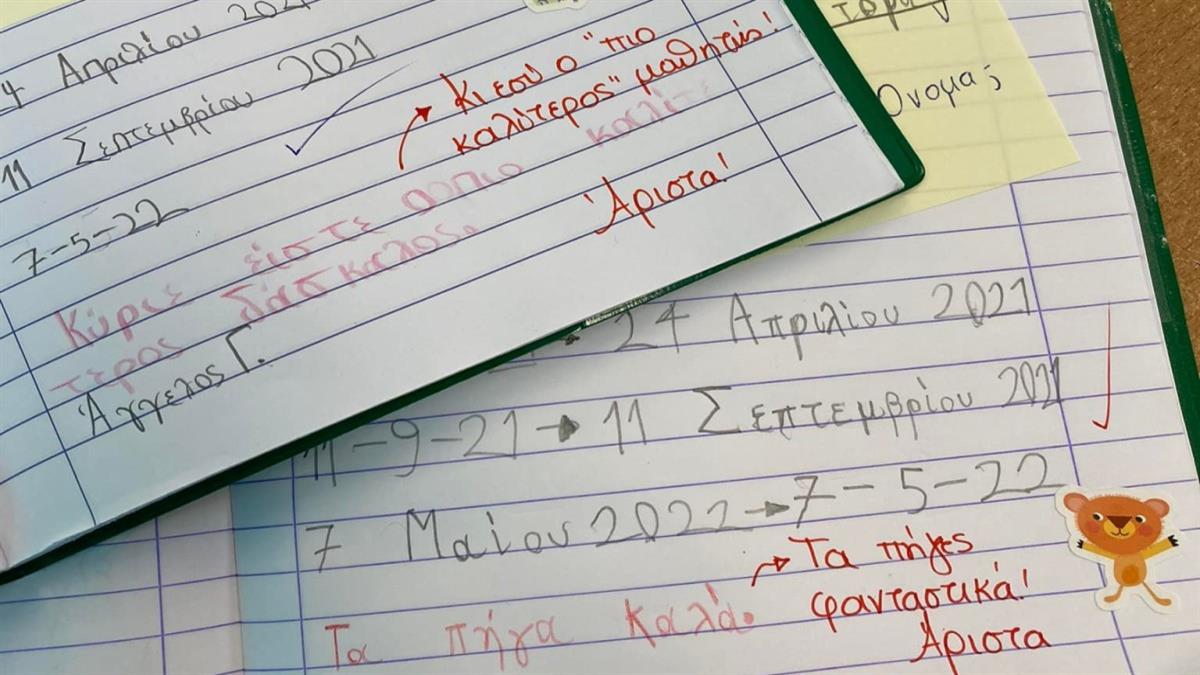 Απριλίου 2021
11 Σεπτεμβρίου 2021
Κι εσύ ο "πιο
καλύτερος" μαθητής!
7-5-22
Κύριε είστε ο πιο καλύ
τερος δάσκαλος.
Άριστα!
Άγγελος Γ.
Όνομα;
24 Απριλίου 2021
11-9-21→11 Σεπτεμβρίου 2021
7 Μαΐου 2022→7-5-22
Τα πήγα καλά.
Τα πήγες
φανταστικά!
Άριστα